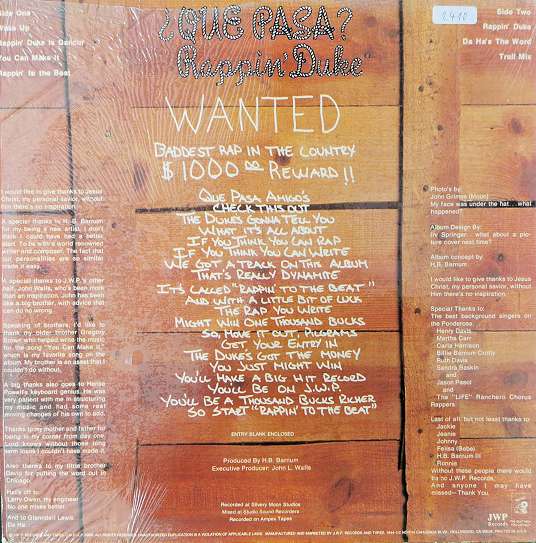 ¿QUE PASA?
Rappin' Duke
WANTED
BADDEST RAP IN THE COUNTRY
$1000 00 REWARD!!
QUE PASA AMIGO'S
CHECK THIS OUT
THE DUKE'S GONNA TELL YOU
WHAT IT'S ALL ABOUT
IF YOU THINK YOU CAN RAP
IF YOU THINK YOU CAN WRITE
WE GOT A TRACK ON THIS ALBUM
THAT'S REALLY DYNAMITE
IT'S CALLED "RAPPIN' TO THE BEAT"
AND WITH A LITTLE BIT OF LUCK
THE RAP YOU WRITE
MIGHT WIN ONE THOUSAND BUCKS
SO, MOVE IT OUT, PILGRAMS
GET YOUR ENTRY IN
THE DUKE'S GOT THE MONEY
YOU JUST MIGHT WIN
YOU'LL MAKE A BIG HIT RECORD
YOU'LL BE ON J.W.P.
YOU'LL BE A THOUSAND BUCKS RICHER
SO START "RAPPIN' TO THE BEAT"
ENTRY BLANK ENCLOSED
Produced By H.B. Barnum
Executive Producer: John L. Walls
Recorded at Silvery Moon Studios
Mixed at Studio Sound Recorders
Recorded on Ampex Tapes
Side One
Wake Up
Rappin' Duke Is Dancin'
You Can Make It
Rappin' Is the Beat
I would like to give thanks to Jesus
Christ, my personal savior, without
Him there's no inspiration.
A special thanks to H. B. Barnum
for my being a new artist. I don't
think I could have had a better
start. To be with a world renowned
writer and composer. The fact that
our personalities are so similar
made it easy.
A special thanks to J.W.P.'s other
half, John Walls, who's been more
than an inspiration. John has been
like a big brother, with advice that
can do no wrong.
Speaking of brothers, I'd like to
thank my older brother Gregory
Brown who helped write the music
for the song "You Can Make It,"
which is my favorite song on the
album. My brother is an asset that I
couldn't do without.
A big thanks also goes to Hense
Powell's keyboard genius. He was
very patient with me in structuring
my music and had some real
moving changes of his own to add.
Thanks to my mother and father for
being in my corner from day one.
Lord knows without those long
term loans I couldn't have made it.
Also thanks to my little brother
David for putting the word out in
Chicago.
Hats off to:
Larry Owen, my engineer
No one mixes better.
And to Glenndell Lewis
Da Ha
Side Two
Rappin' Duke
Da Ha's The Word
Trail Mix
Photo's by
John Grimes
My face was under the hat... what
happened?
Album Design By:
Irv Springer - what about a pic-
ture cover next time?
Album concept by:
H.B. Barnum
I would like to give thanks to Jesus
Christ, my personal savior, without
Him there's no inspiration.
Special Thanks to:
The best background singers on
the Ponderosa.
Henry Davis
Martha Carr
Carla Harrison
Billie Barnum
Ruth Davis
Sandra Baskin
and
Jason Pasol
and
The "LIFE" Ranchero Chorus
Rappers
Last of all, but not least thanks to:
Jackie
Jeanie
Johnny
Felisa (Bobe)
H.B. Barnum III
Ronnie
Without these people there would
be no J.W.P. Records.
And anyone I may have
missed—Thank You.
JWP
Records